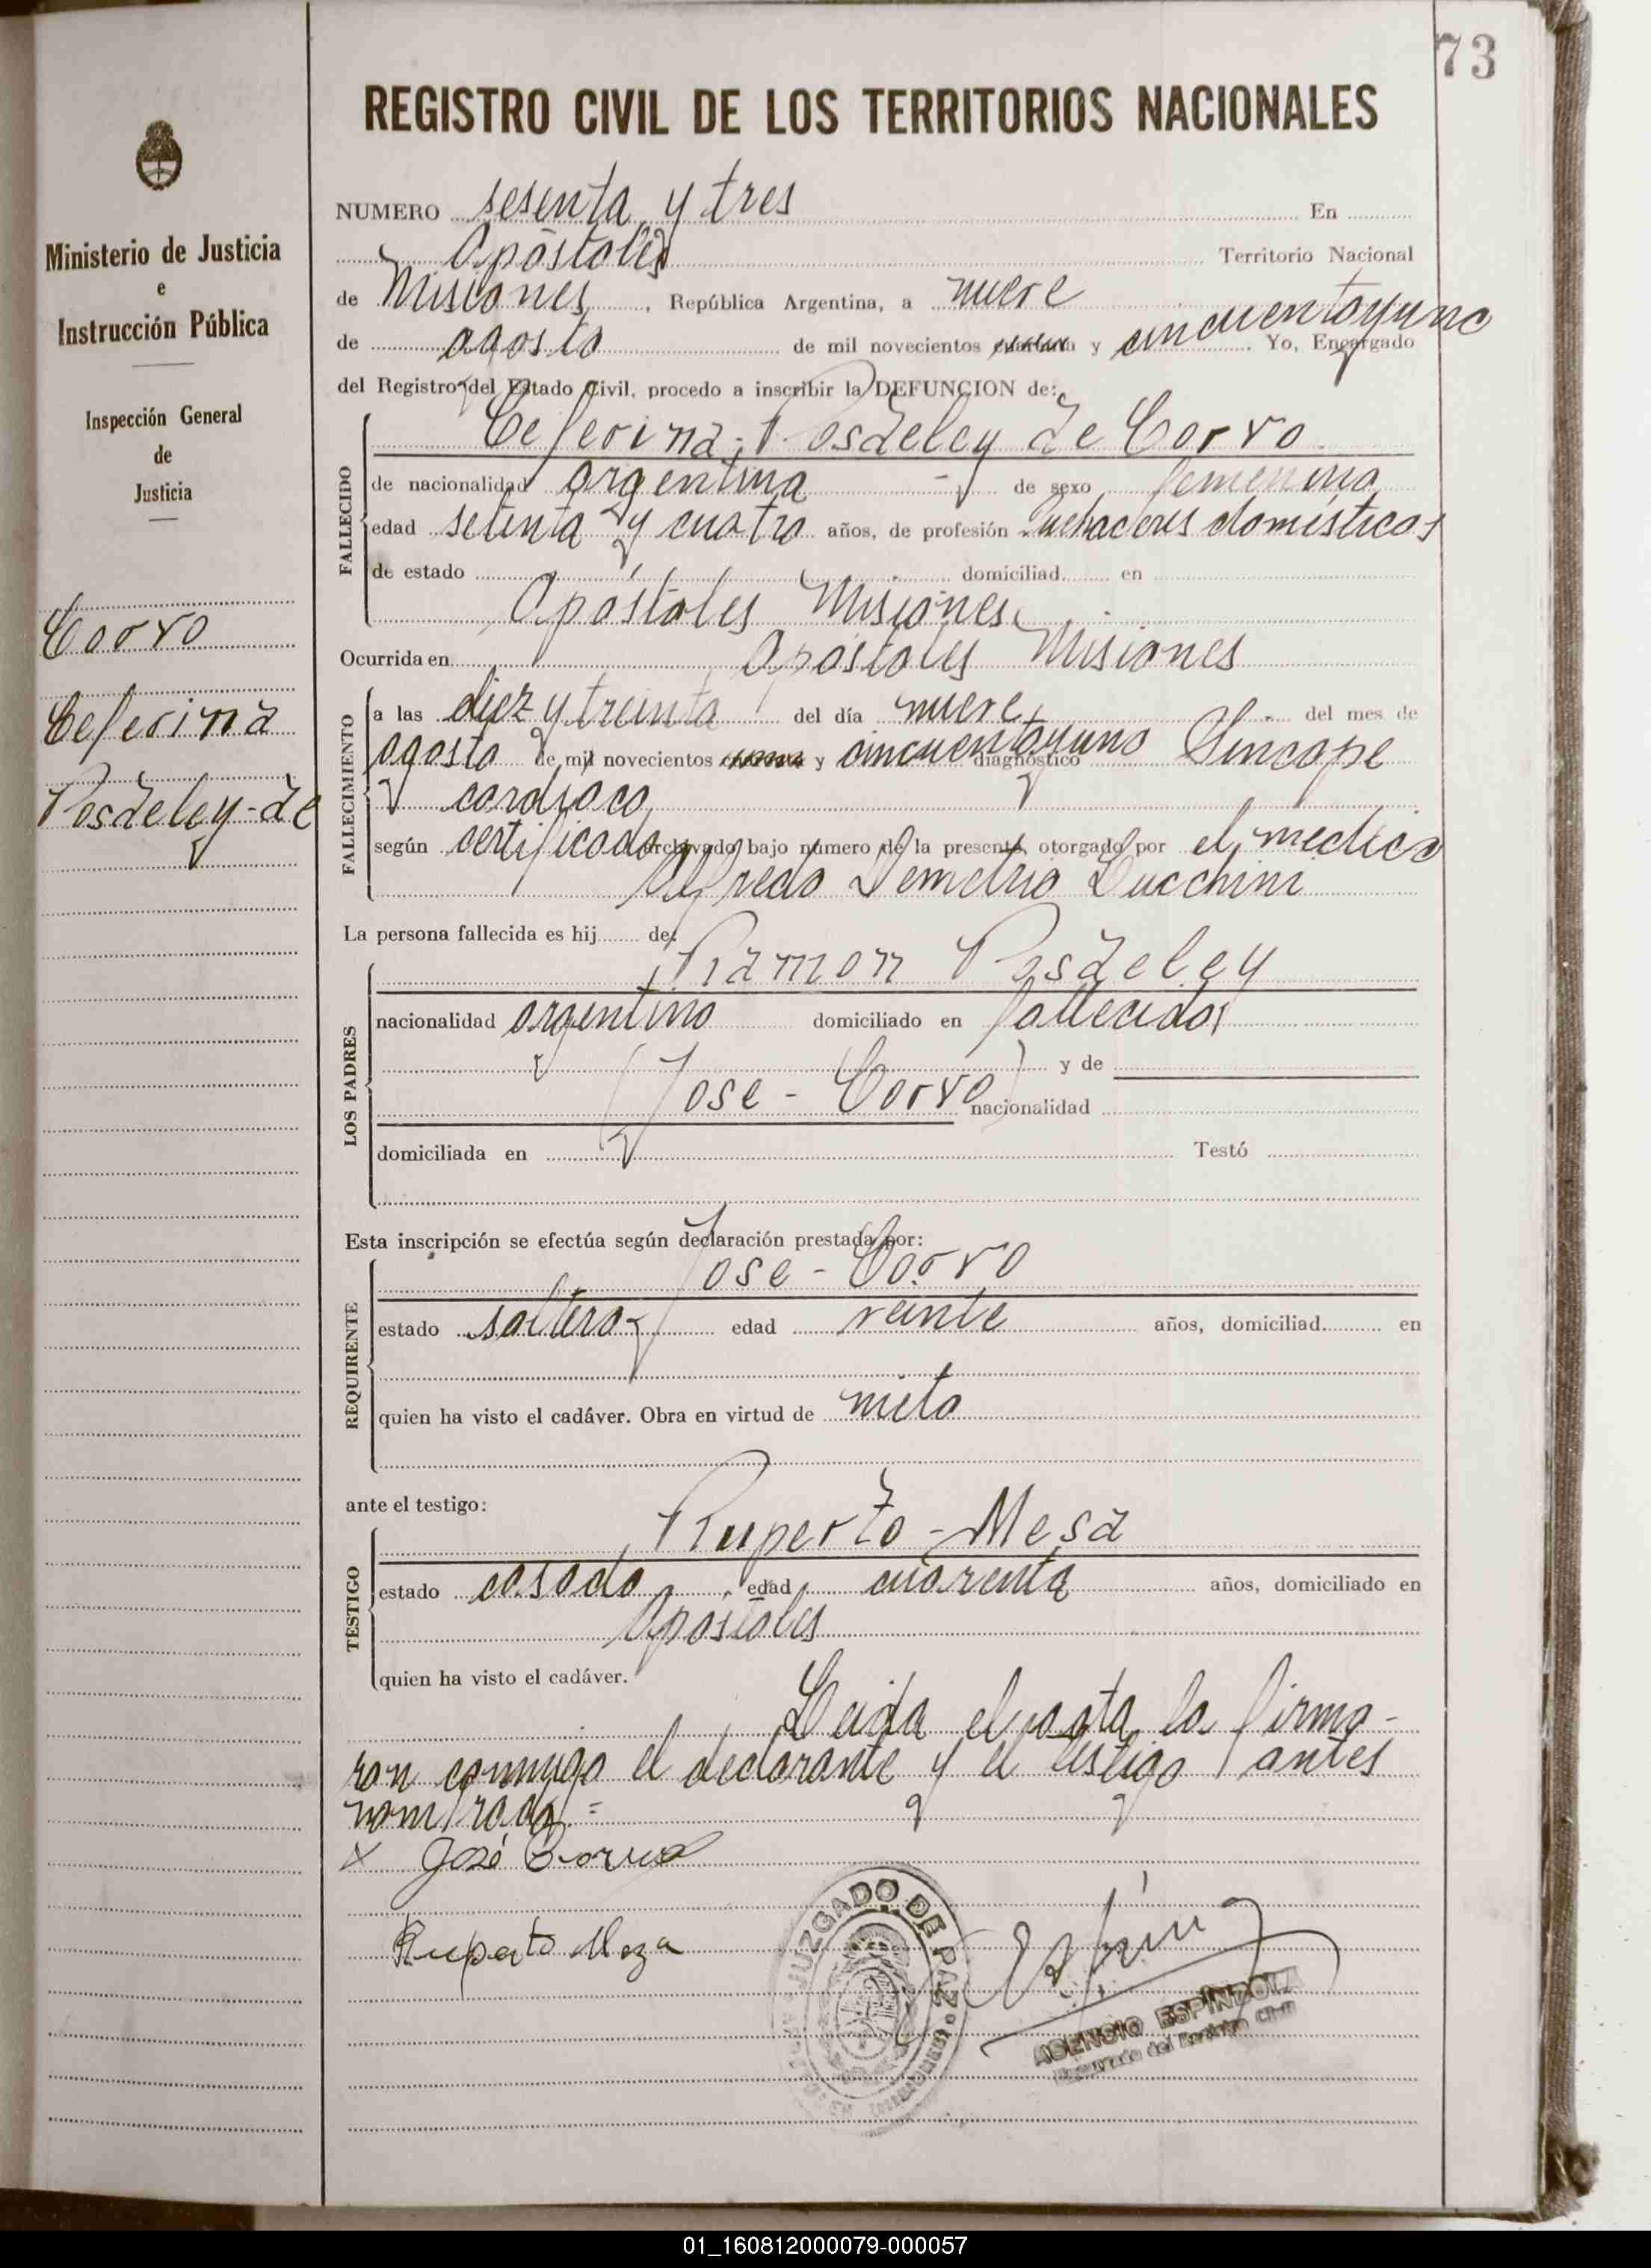 73
REGISTRO CIVIL DE LOS TERRITORIOS NACIONALES
Ministerio de Justicia
e
Instrucción Pública
Inspección General
de
Justicia
Corvo
Ceferina
Posdeley-de
NUMERO sesenta y tres En
Apóstoles Territorio Nacional
de Misiones, República Argentina, a nueve
de agosto de mil novecientos y cincuentayuno. Yo, Encargado
del Registro del Estado Civil, procedo a inscribir la DEFUNCION de:
FALLECIDO
Ceferina Posdeley de Corvo
de nacionalidad argentina de sexo femenino
edad setenta y cuatro años, de profesión quehaceres domésticos
de estado domiciliad en
Apóstoles Misiones
Ocurrida en Apóstoles Misiones
FALLECIMIENTO
a las diez y treinta del día nueve del mes de
agosto de mil novecientos y cincuentayuno diagnóstico Síncope
cardíaco
según certificado archivado bajo número de la presente, otorgado por el médico
Alfredo Demetrio Lucchini
La persona fallecida es hij de:
LOS PADRES
Ramon Posdeley
nacionalidad argentino domiciliado en fallecido
y de
(Jose - Corvo) nacionalidad
domiciliada en Testó
Esta inscripción se efectúa según declaración prestada por:
REQUIRENTE
Jose - Corvo
estado soltero edad veinte años, domiciliad en
quien ha visto el cadáver. Obra en virtud de nieto
ante el testigo:
TESTIGO
Ruperto - Mesa
estado casado, edad cuarenta años, domiciliado en
Apóstoles
quien ha visto el cadáver.
Leida el acta la firma-
ron conmigo el declarante y el testigo antes
nombrado =
x José Corvo
Ruperto Meza
JUZGADO DE PAZ
ASENCIO ESPÍNDOLA
Encargado del Registro Civil
01_160812000079-000057